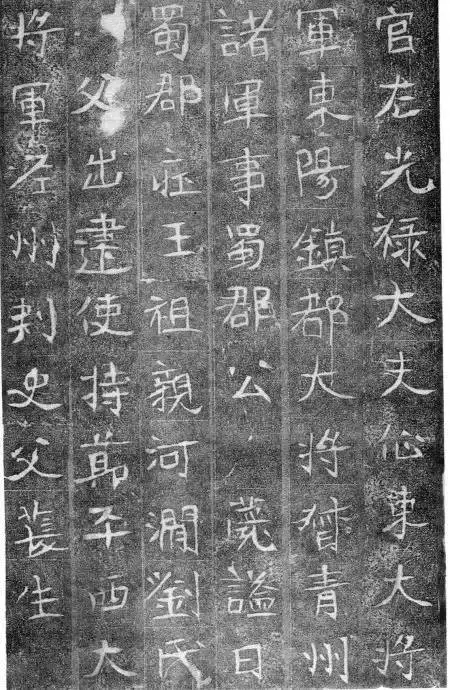 官左光禄大夫征東大将
軍東陽鎮都大将督青州
諸軍事蜀郡公薨謚曰
蜀郡莊王祖親河澗劉氏
父出建使持節平西大
将軍泾州刾史父萇生